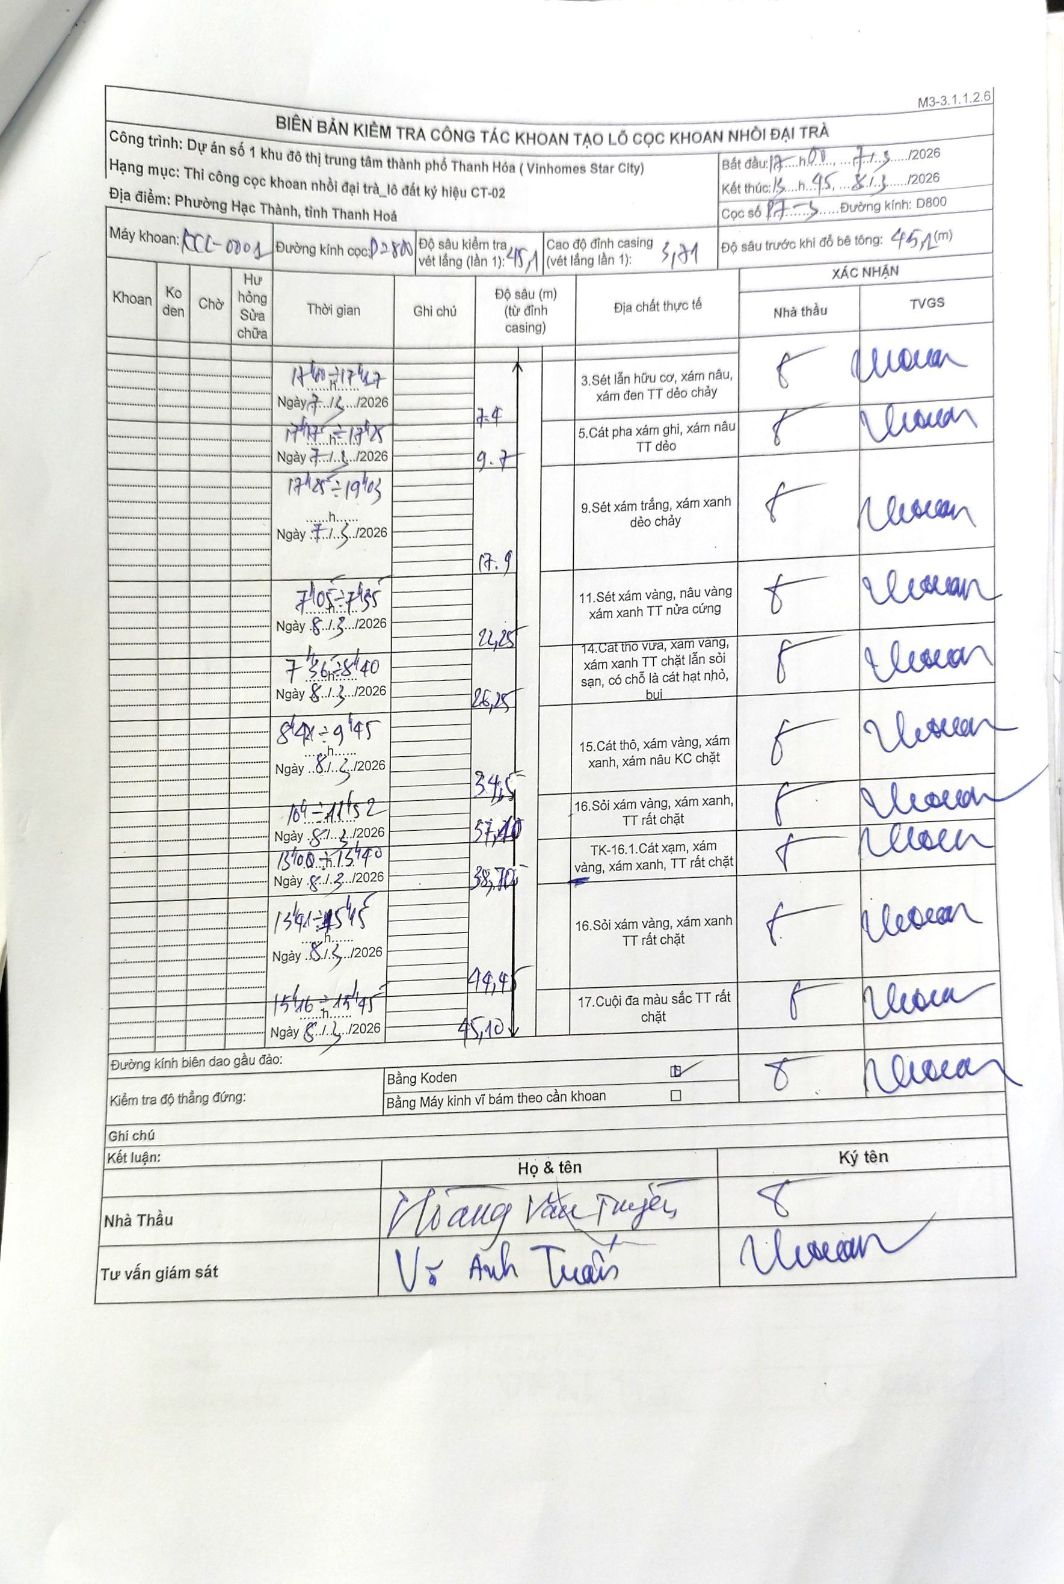 M3-3.1.1.2.6
BIÊN BẢN KIỂM TRA CÔNG TÁC KHOAN TẠO LỖ CỌC KHOAN NHỒI ĐẠI TRÀ
Công trình: Dự án số 1 khu đô thị trung tâm thành phố Thanh Hóa ( Vinhomes Star City)
Hạng mục: Thi công cọc khoan nhồi đại trà_lô đất ký hiệu CT-02
Địa điểm: Phường Hạc Thành, tỉnh Thanh Hoá
Bắt đầu: 17 h 00, 7/3/2026
Kết thúc: 15 h 45, 8/3/2026
Cọc số P7-3 Đường kính: D800
Máy khoan: Đường kính cọc: D800 Độ sâu kiểm tra vét lắng (lần 1): 45,1 Cao độ đỉnh casing (vét lắng lần 1): 3,71 Độ sâu trước khi đổ bê tông: 45,1 (m)
Khoan Ko den Chờ Hư hỏng Sửa chữa Thời gian Ghi chú Độ sâu (m) (từ đỉnh casing) Địa chất thực tế XÁC NHẬN
Nhà thầu TVGS
Ngày 7/3/2026 7.4 3.Sét lẫn hữu cơ, xám nâu, xám đen TT dẻo chảy
17h25
Ngày 7/3/2026 9.7 5.Cát pha xám ghi, xám nâu TT dẻo
17h25÷19h03
Ngày 7/3/2026 17.9 9.Sét xám trắng, xám xanh dẻo chảy
7h05÷7h35
Ngày 8/3/2026 22,25 11.Sét xám vàng, nâu vàng xám xanh TT nửa cứng
7h36÷8h40
Ngày 8/3/2026 26,25 14.Cát thô vừa, xám vàng, xám xanh TT chặt lẫn sỏi sạn, có chỗ là cát hạt nhỏ, bụi
8h41÷9h45
Ngày 8/3/2026 34,5 15.Cát thô, xám vàng, xám xanh, xám nâu KC chặt
11h52
Ngày 8/3/2026 37,10 16.Sỏi xám vàng, xám xanh, TT rất chặt
13h00÷13h40
Ngày 8/3/2026 38,70 TK-16.1.Cát xạm, xám vàng, xám xanh, TT rất chặt
13h41÷15h15
Ngày 8/3/2026 44,45 16.Sỏi xám vàng, xám xanh TT rất chặt
15h16÷15h45
Ngày 8/3/2026 45,10 17.Cuội đa màu sắc TT rất chặt
Đường kính biên dao gầu đào:
Kiểm tra độ thẳng đứng: Bằng Koden
Bằng Máy kinh vĩ bám theo cần khoan
Ghi chú
Kết luận:
Họ & tên Ký tên
Nhà Thầu Hoàng Văn Truyền
Tư vấn giám sát Võ Anh Tuấn